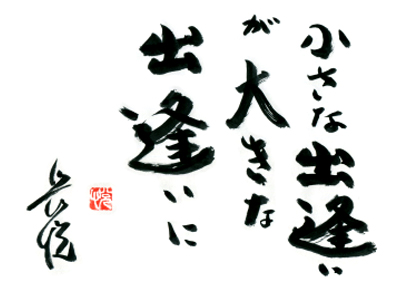 小さな出逢い
が大きな
出逢いに